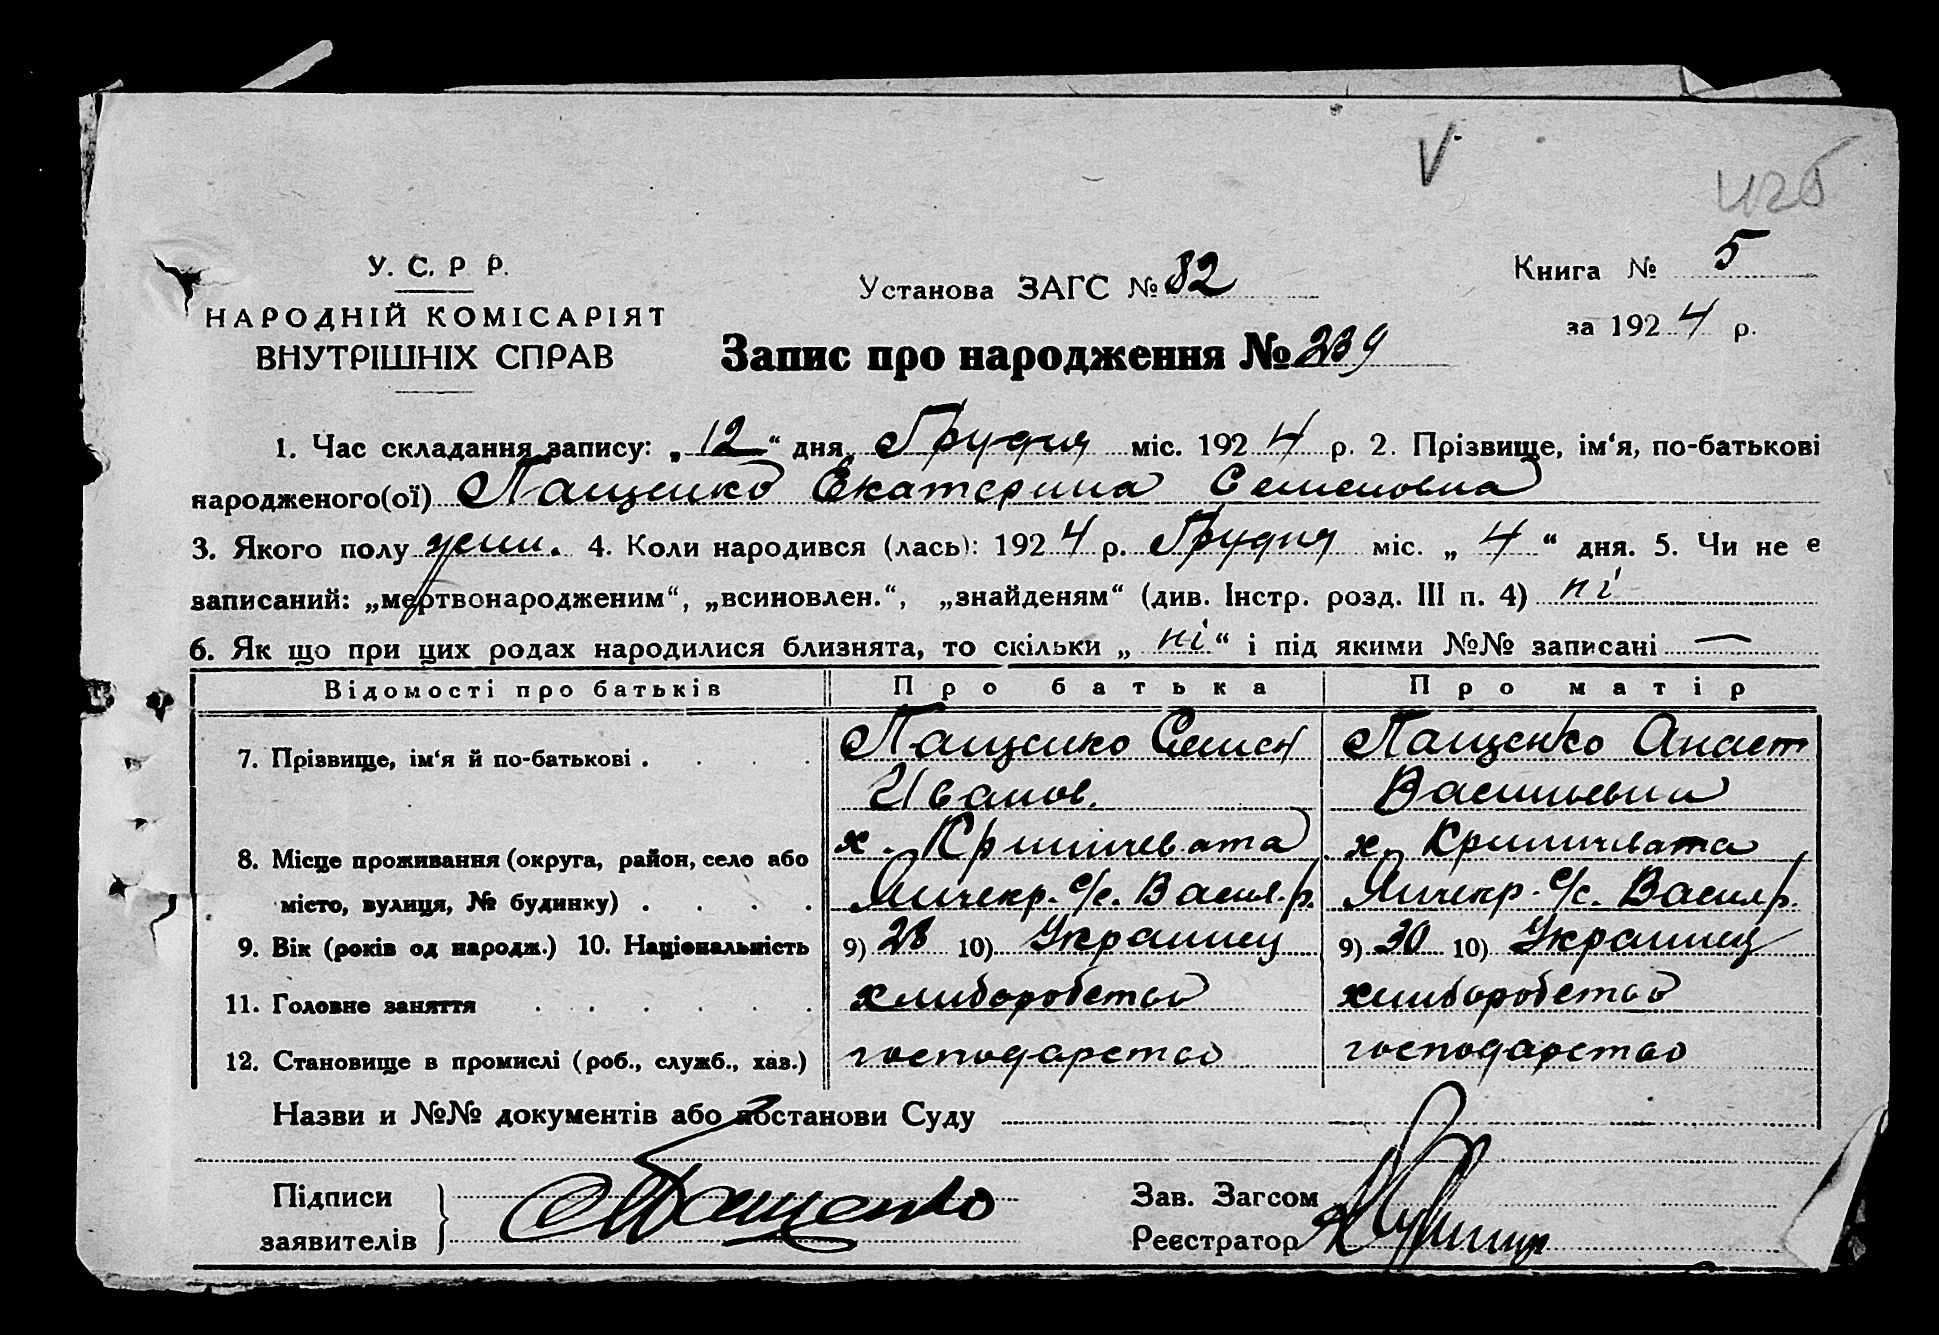 V
У. С. Р. Р.
НАРОДНІЙ КОМІСАРІЯТ
ВНУТРІШНІХ СПРАВ
Установа ЗАГС № 82
Книга № 5
за 1924 р.
Запис про народження № 239
1. Час складання запису: „12“ дня Грудня міс. 1924 р. 2. Прізвище, ім‘я, по-батькові
народженого(ої) Пащенко Екатерина Семеновна
3. Якого полу жен. 4. Коли народився (лась): 1924 р. Грудня міс. „4“ дня. 5. Чи не є
записаний: „мертвонародженим“, „всиновлен.“, „знайденям“ (див. Інстр. розд. III п. 4) ні
6. Як що при цих родах народилися близнята, то скільки „ні“ і під якими №№ записані —
Відомості про батьків Про батька Про матір
7. Прізвище, ім‘я й по-батькові . . . . Пащенко Семен Пащенко Анаст
Иванов. Васильевна
8. Місце проживання (округа, район, село або х. Криничевата х. Криничевата
місто, вулиця, № будинку) . . . . с/с. Васил. р. с/с. Васил р.
9. Вік (років од народж.) 10. Національність 9) 28 10) Украинец 9) 30 10) Украинец
11. Головне заняття . . . . . . хлиборобство хлиборобство
12. Становище в промислі (роб., служб., хаз.) господарство господарство
Назви и №№ документів або постанови Суду
Підписи
заявителів
Пащенко
Зав. Загсом
Реєстратор